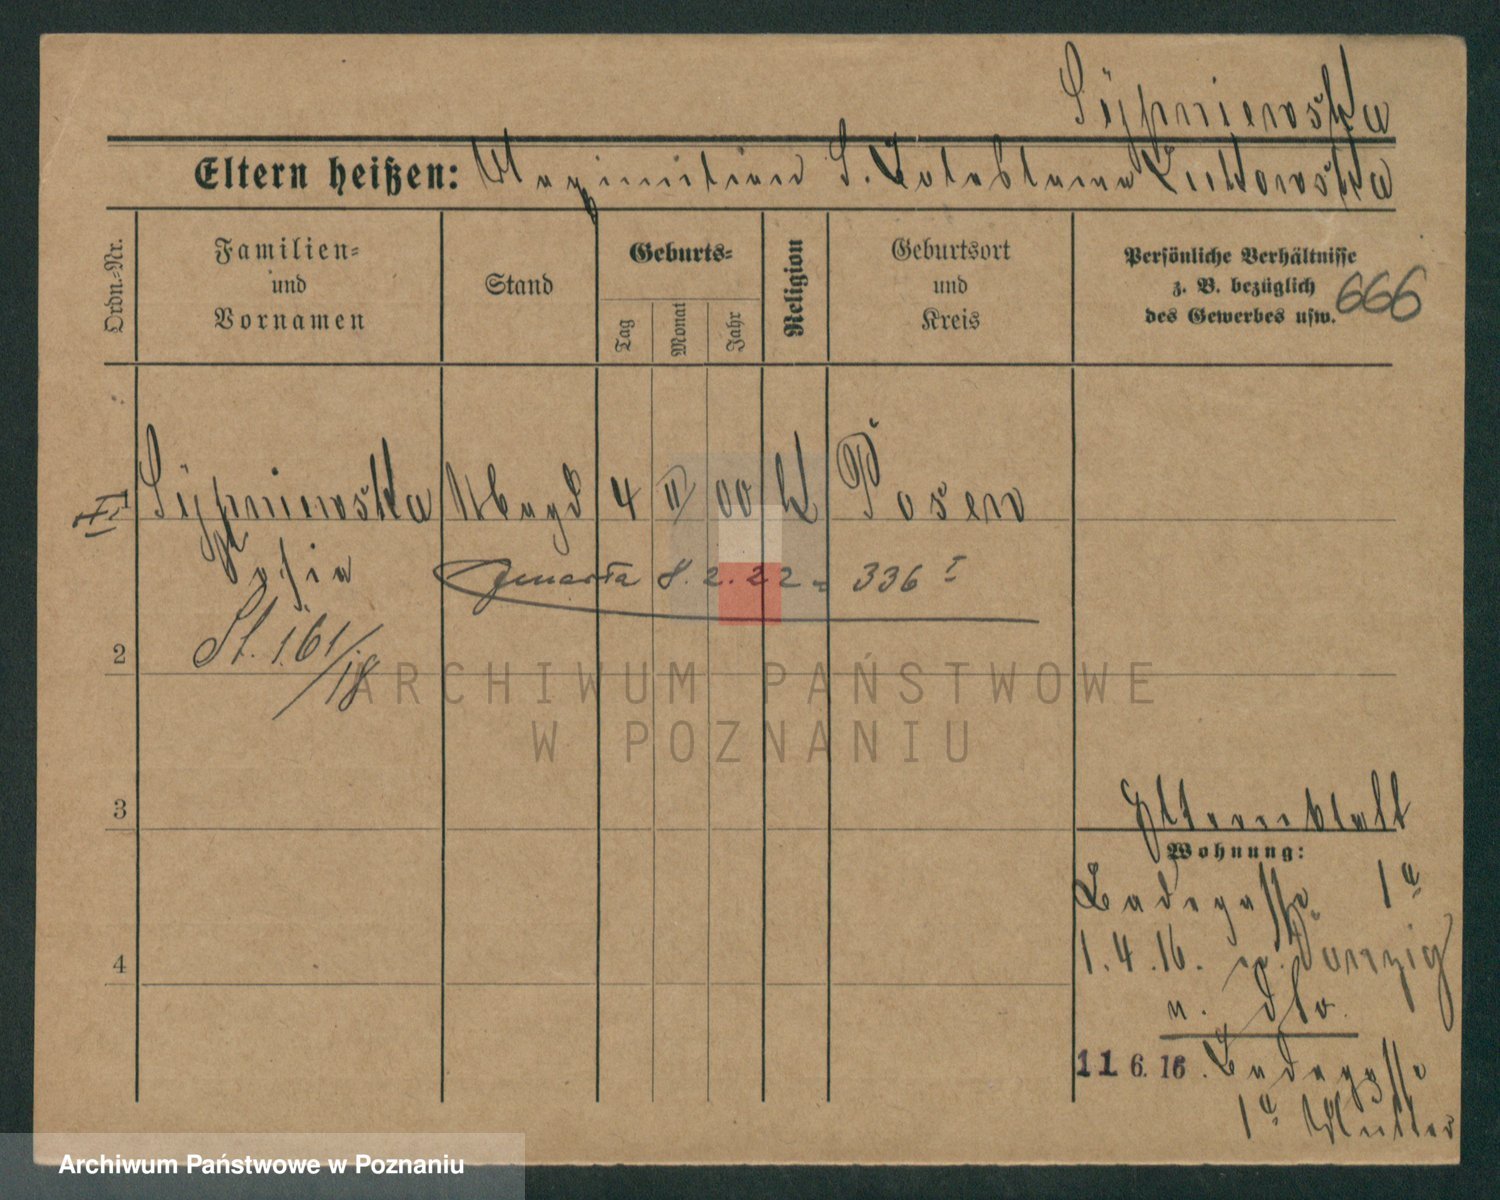 Sÿpniewska
Eltern heißen: Maximilian S. Lutowska
Ordn.-Nr.
Familien-
und
Vornamen
Stand
Geburts-
Tag
Monat
Jahr
Religion
Geburtsort
und
Kreis
Persönliche Verhältnisse
z. B. bezüglich
des Gewerbes usw.
666
1 Sÿpniewska Magd 4 II 00 K Posen
Zofia
zmarła 8.2.22 = 336 I
St. 161/18
2
3
4
Elternblatt
Wohnung:
Badegasse 1a
1.4.16. n. Danzig
u. dto.
11 6. 16. Badegasse
1a Mutter
ARCHIWUM PAŃSTWOWE
W POZNANIU
Archiwum Państwowe w Poznaniu